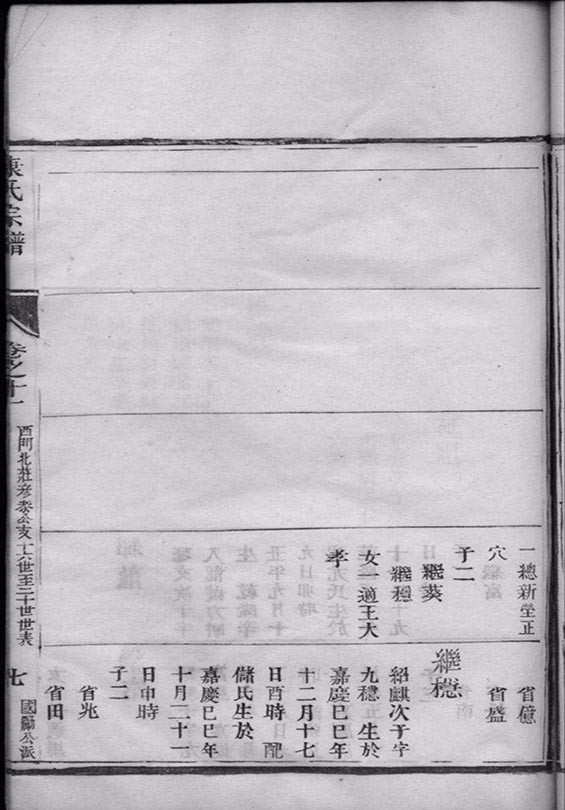 一總新塋正
穴
子二
繼葵
繼穗
女一適王大
孝
省億
省盛
繼穗
紹麒次子字
九穗生於
嘉慶己巳年
十二月十七
日酉時配
儲氏生於
嘉慶己巳年
十月二十一
日申時
子二
省兆
省田
氏宗譜
卷之十一
西門北莊彥 公支十六世至二十世世表
七
國 公派